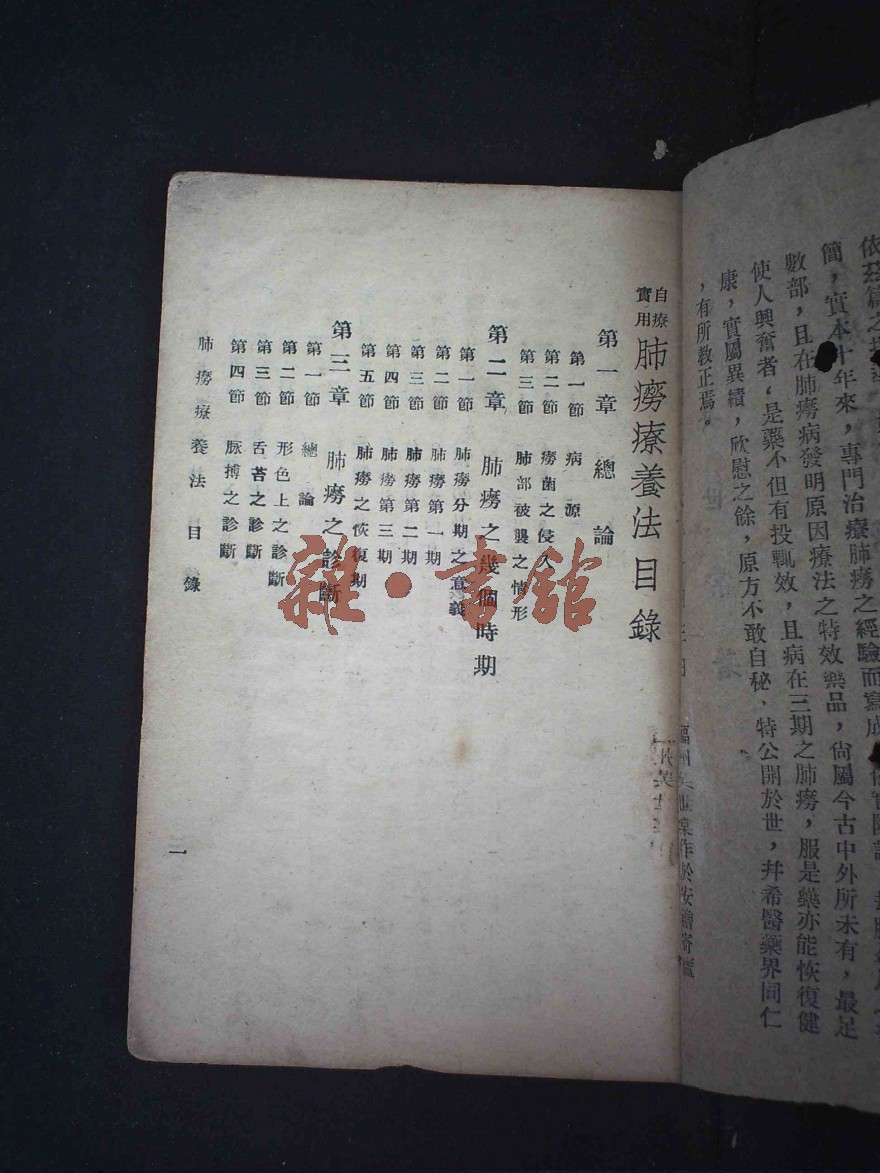 簡，實本十年來，專門治療肺癆之經驗而寫成
數部，且在肺癆病發明原因療法之特效藥品，尙屬今古中外所未有，最足
使人興奮者，是藥不但有投輒效，且病在三期之肺癆，服是藥亦能恢復健
康，實屬異績，欣慰之餘，原方不敢自秘，特公開於世，幷希醫藥界同仁
，有所敎正焉。
自療
實用
肺癆療養法目錄
第一章 總論
第一節 病源
第二節 癆菌之侵入
第三節 肺部被襲之情形
第二章 肺癆之幾個時期
第一節 肺癆分期之意義
第二節 肺癆第一期
第三節 肺癆第二期
第四節 肺癆第三期
第五節 肺癆之恢復期
第三章 肺癆之診斷
第一節 總論
第二節 形色上之診斷
第三節 舌苔之診斷
第四節 脈搏之診斷
肺癆療養法 目錄
一
雜·書館